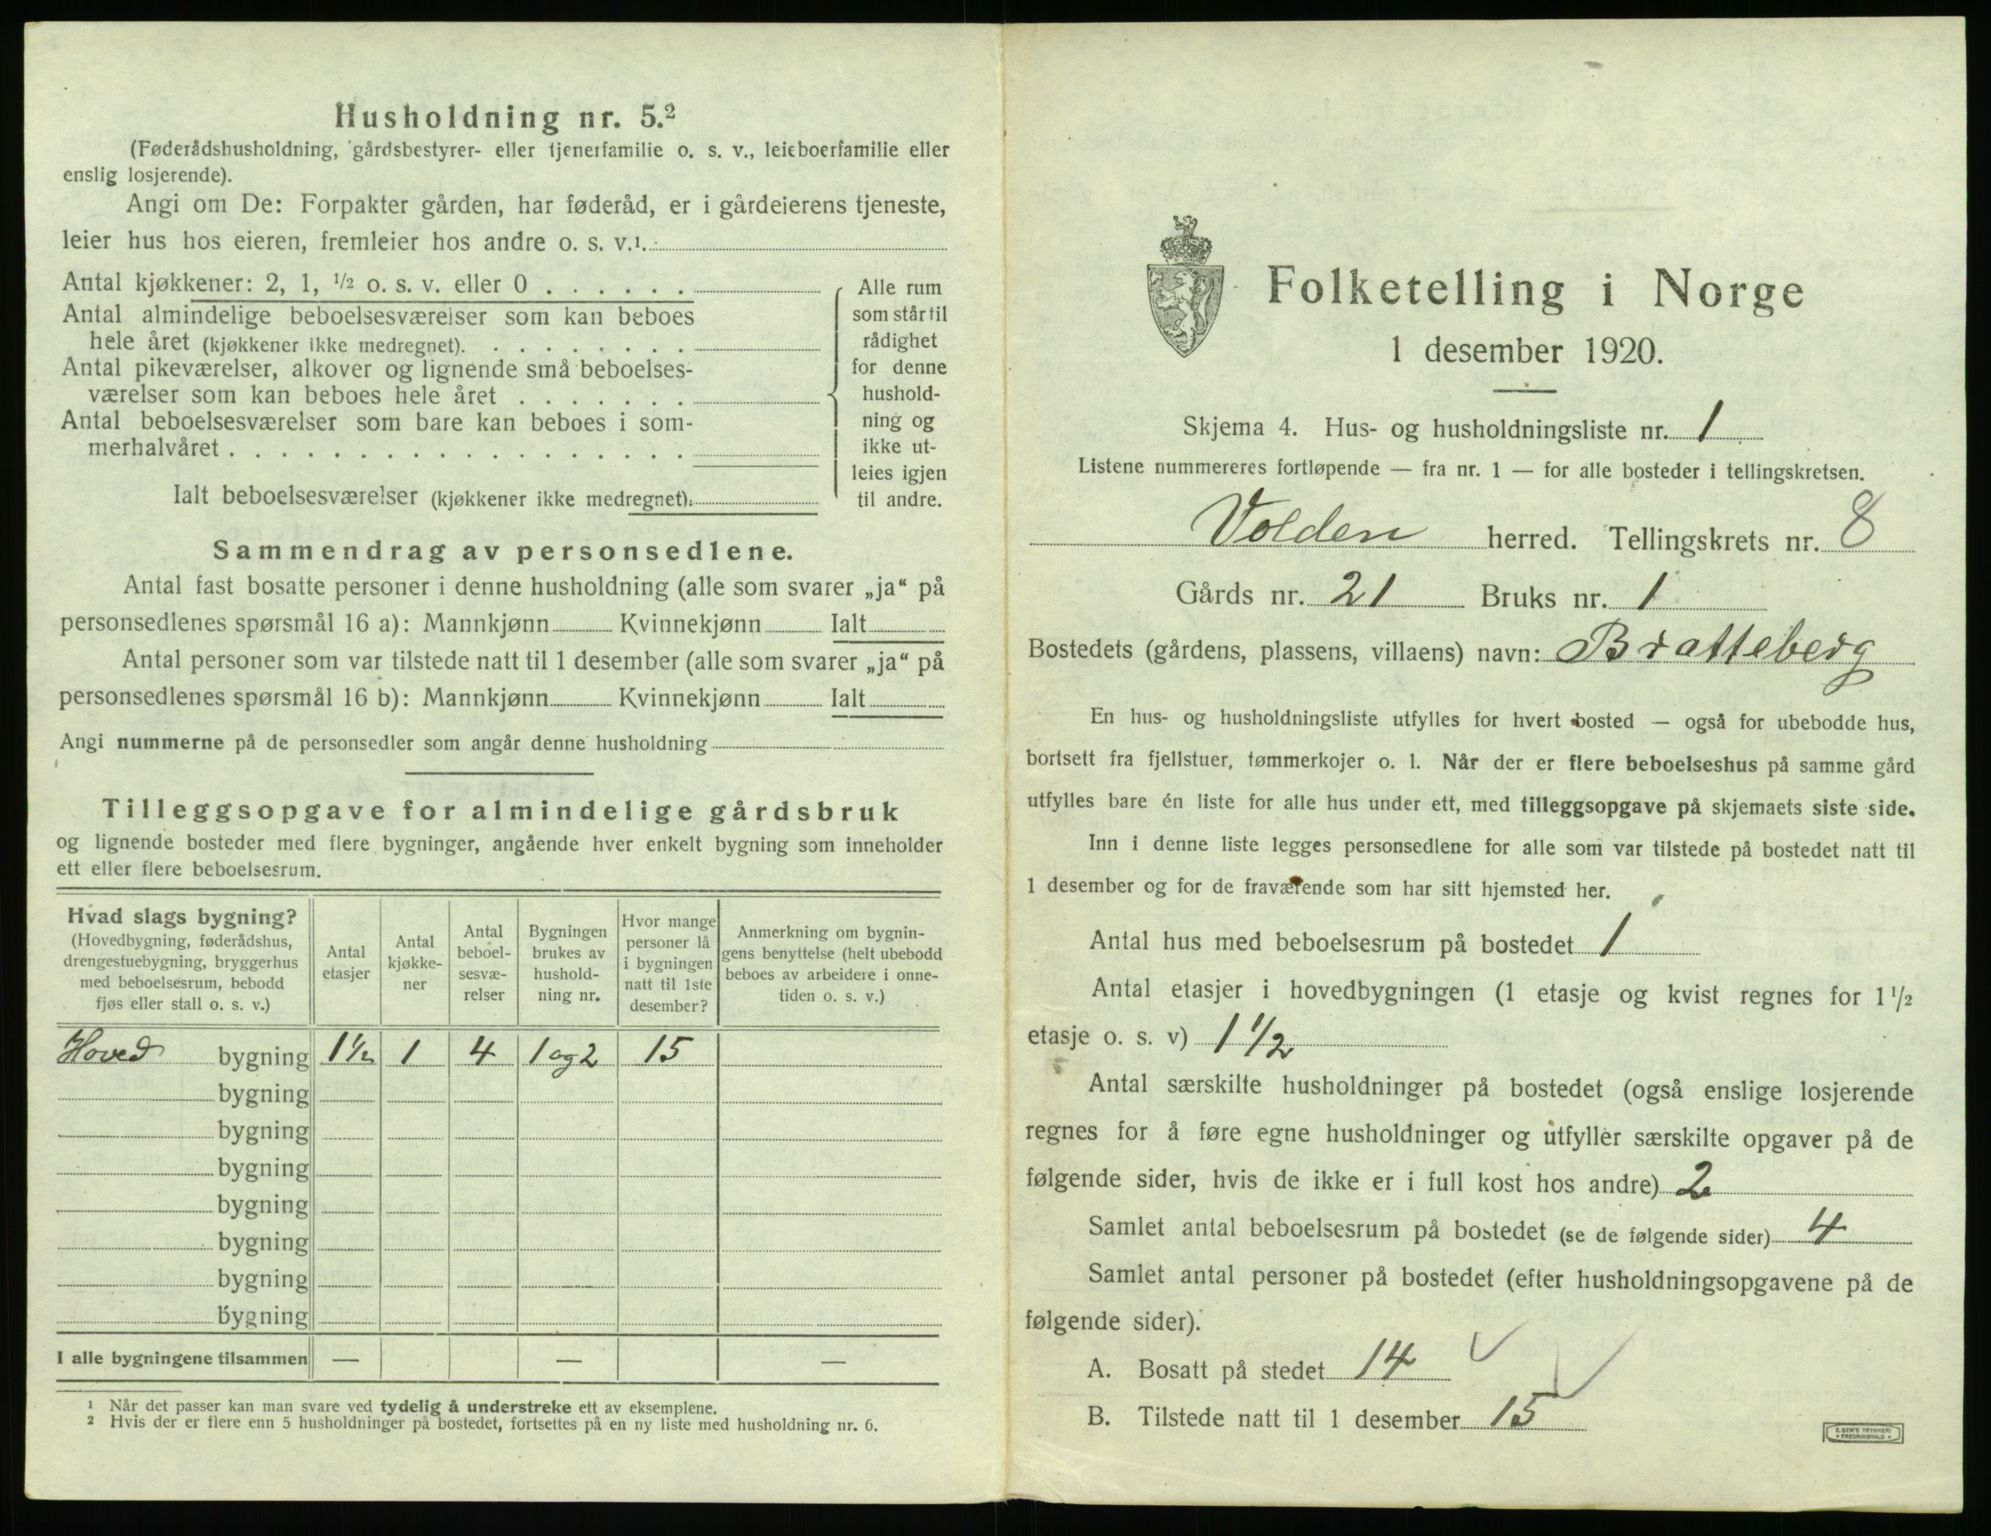 Husholdning nr. 5.²
(Føderådshusholdning, gårdsbestyrer- eller tjenerfamilie o. s. v., leieboerfamilie eller
enslig losjerende).
Angi om De: Forpakter gården, har føderåd, er i gårdeierens tjeneste,
leier hus hos eieren, fremleier hos andre o. s. v.¹
Antal kjøkkener: 2, 1, ¹/₂ o. s. v. eller 0 . . . . . .
Antal almindelige beboelsesværelser som kan beboes
hele året (kjøkkener ikke medregnet). . . . . . . . .
Antal pikeværelser, alkover og lignende små beboelses-
værelser som kan beboes hele året . . . . . . .
Antal beboelsesværelser som bare kan beboes i som-
merhalvåret . . . . . . . . . . . . . . . . . .
Ialt beboelsesværelser (kjøkkener ikke medregnet).
Alle rum
som står til
rådighet
for denne
hushold-
ning og
ikke ut-
leies igjen
til andre.
Sammendrag av personsedlene.
Antal fast bosatte personer i denne husholdning (alle som svarer „ja“ på
personsedlenes spørsmål 16 a): Mannkjønn Kvinnekjønn Ialt
Antal personer som var tilstede natt til 1 desember (alle som svarer „ja“ på
personsedlenes spørsmål 16 b): Mannkjønn Kvinnekjønn Ialt
Angi nummerne på de personsedler som angår denne husholdning
Tilleggsopgave for almindelige gårdsbruk
og lignende bosteder med flere bygninger, angående hver enkelt bygning som inneholder
ett eller flere beboelsesrum.
Hvad slags bygning?
(Hovedbygning, føderådshus,
drengestuebygning, bryggerhus
med beboelsesrum, bebodd
fjøs eller stall o. s. v.)
Antal
etasjer
Antal
kjøkke-
ner
Antal
beboel-
sesvæ-
relser
Bygningen
brukes av
hushold-
ning nr.
Hvor mange
personer lå
i bygningen
natt til 1ste
desember?
Anmerkning om bygnin-
gens benyttelse (helt ubebodd
beboes av arbeidere i onne-
tiden o. s. v.)
Hoved bygning 1 1/2 1 4 1 og 2 15
bygning
bygning
bygning
bygning
bygning
bygning
bygning
I alle bygningene tilsammen — — —
¹ Når det passer kan man svare ved tydelig å understreke ett av eksemplene.
² Hvis der er flere enn 5 husholdninger på bostedet, fortsettes på en ny liste med husholdning nr. 6.
Folketelling i Norge
1 desember 1920.
Skjema 4. Hus- og husholdningsliste nr. 1
Listene nummereres fortløpende — fra nr. 1 — for alle bosteder i tellingskretsen.
Volden herred. Tellingskrets nr. 8
Gårds nr. 21 Bruks nr. 1
Bostedets (gårdens, plassens, villaens) navn: Bratteberg
En hus- og husholdningsliste utfylles for hvert bosted — også for ubebodde hus,
bortsett fra fjellstuer, tømmerkojer o. l. Når der er flere beboelseshus på samme gård
utfylles bare én liste for alle hus under ett, med tilleggsopgave på skjemaets siste side.
Inn i denne liste legges personsedlene for alle som var tilstede på bostedet natt til
1 desember og for de fraværende som har sitt hjemsted her.
Antal hus med beboelsesrum på bostedet 1
Antal etasjer i hovedbygningen (1 etasje og kvist regnes for 1 ¹/₂
etasje o. s. v) 1 1/2
Antal særskilte husholdninger på bostedet (også enslige losjerende
regnes for å føre egne husholdninger og utfyller særskilte opgaver på de
følgende sider, hvis de ikke er i full kost hos andre) 2
Samlet antal beboelsesrum på bostedet (se de følgende sider) 4
Samlet antal personer på bostedet (efter husholdningsopgavene på de
følgende sider).
A. Bosatt på stedet 14 ✓
B. Tilstede natt til 1 desember 15 ✓
E. SEM'S TRYKKERI
• FREDRIKSHALD •